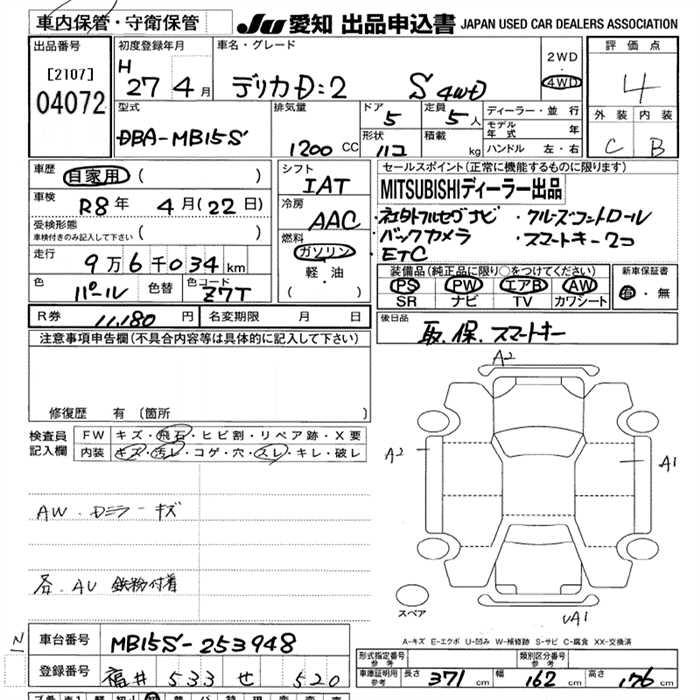 車内保管・守衛保管
JU 愛知 出品申込書 JAPAN USED CAR DEALERS ASSOCIATION
出品番号
[2107]
04072
初度登録年月
H 27年 4月
車名・グレード
デリカD:2 S 4WD
2WD
4WD
評価点
4
外装 内装
C B
型式
DBA-MB15S
排気量
1200 CC
ドア
5
形状
ハコ
定員
5人
積載
kg
ディーラー・並行
モデル年式 年
ハンドル 左・右
車歴
自家用 ( )
車検
R8年 4月(22日)
受検形態
車検付きのみ記入して下さい ( )
走行
9万6千034km
色
パール
色替
色コード
Z7T
シフト
IAT
冷房
AAC
燃料
ガソリン
軽・油
( )
セールスポイント(正常に機能するものに限ります)
MITSUBISHIディーラー出品
・社外フルセグナビ ・クルーズコントロール
・バックカメラ ・スマートキー2コ
・ETC
装備品(純正品に限り○をつけてください)
PS PW エアB AW
SR ナビ TV カワシート
新車保証書
有・無
R券 11,180円
名変期限 月 日
後日品
取.保.スマートキー
注意事項申告欄(不具合内容等は具体的に記入して下さい)
修復歴 有(箇所 )
検査員記入欄
FW キズ・飛石・ヒビ割・リペア跡・X要
内装 キズ・汚レ・コゲ・穴・スレ・キレ・破レ
AW.Dミラーキズ
各.AW 鉄粉付着
A2
A2
A1
A1
スペア
A-キズ E-エクボ U-凹み W-補修跡 S-サビ C-腐食 XX-交換済
N
車台番号
MB15S-253948
登録番号
福井 533 せ 520
形式指定番号
参考
類別区分番号
参考
車庫証明用
参考
長さ 371cm 幅 162cm 高さ 176cm